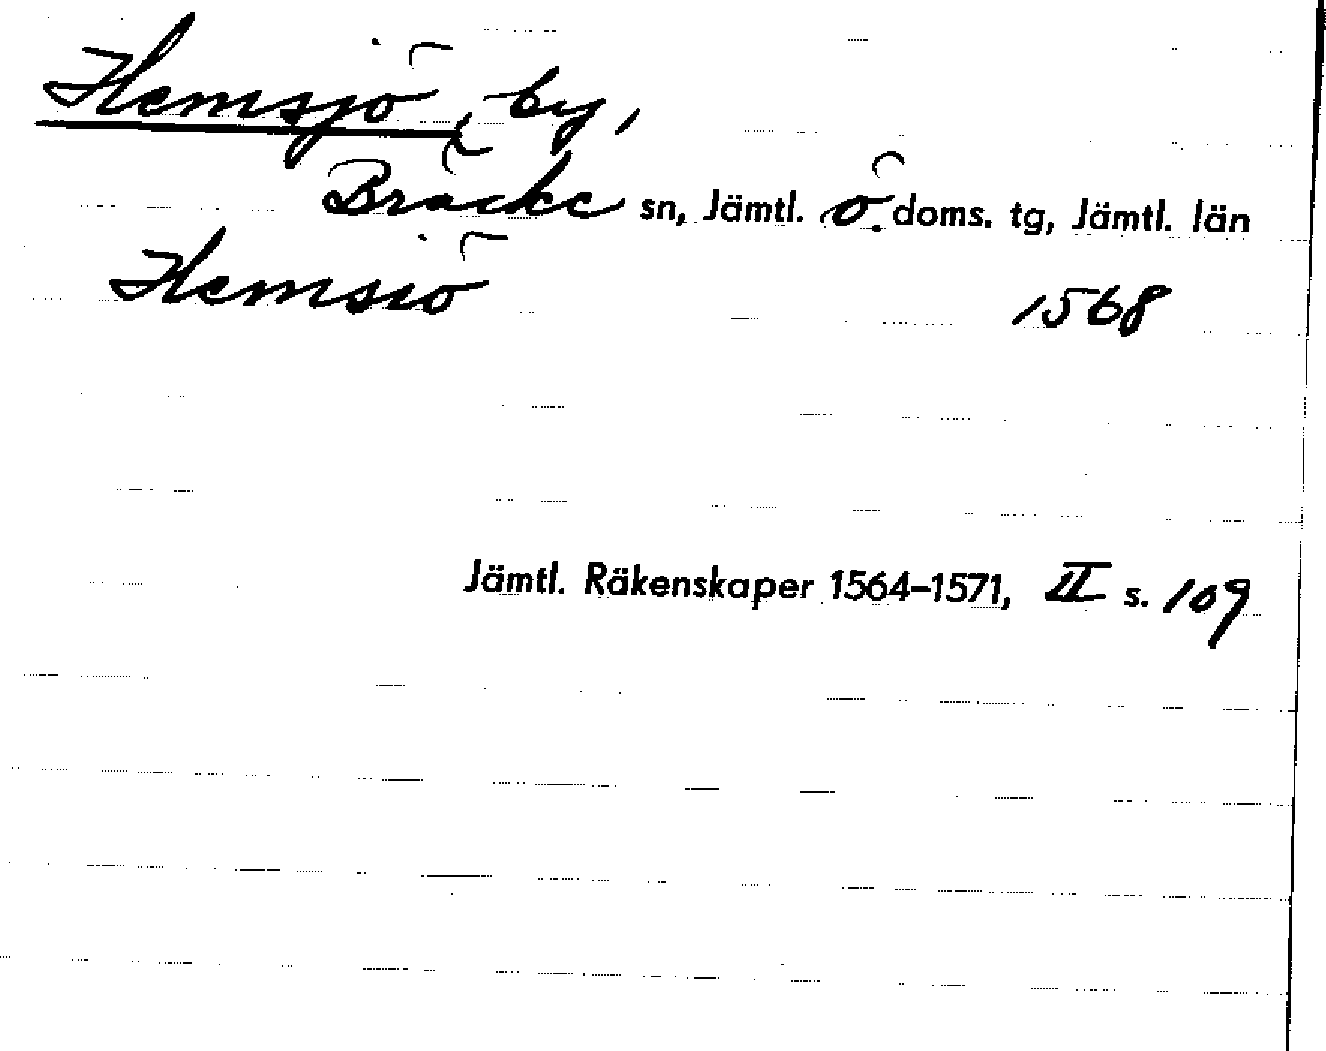 Hemsjö, by,
Bräcke sn, Jämtl. ö. doms. tg, Jämtl. län
Hemsiö 1568
Jämtl. Räkenskaper 1564–1571, II s. 109